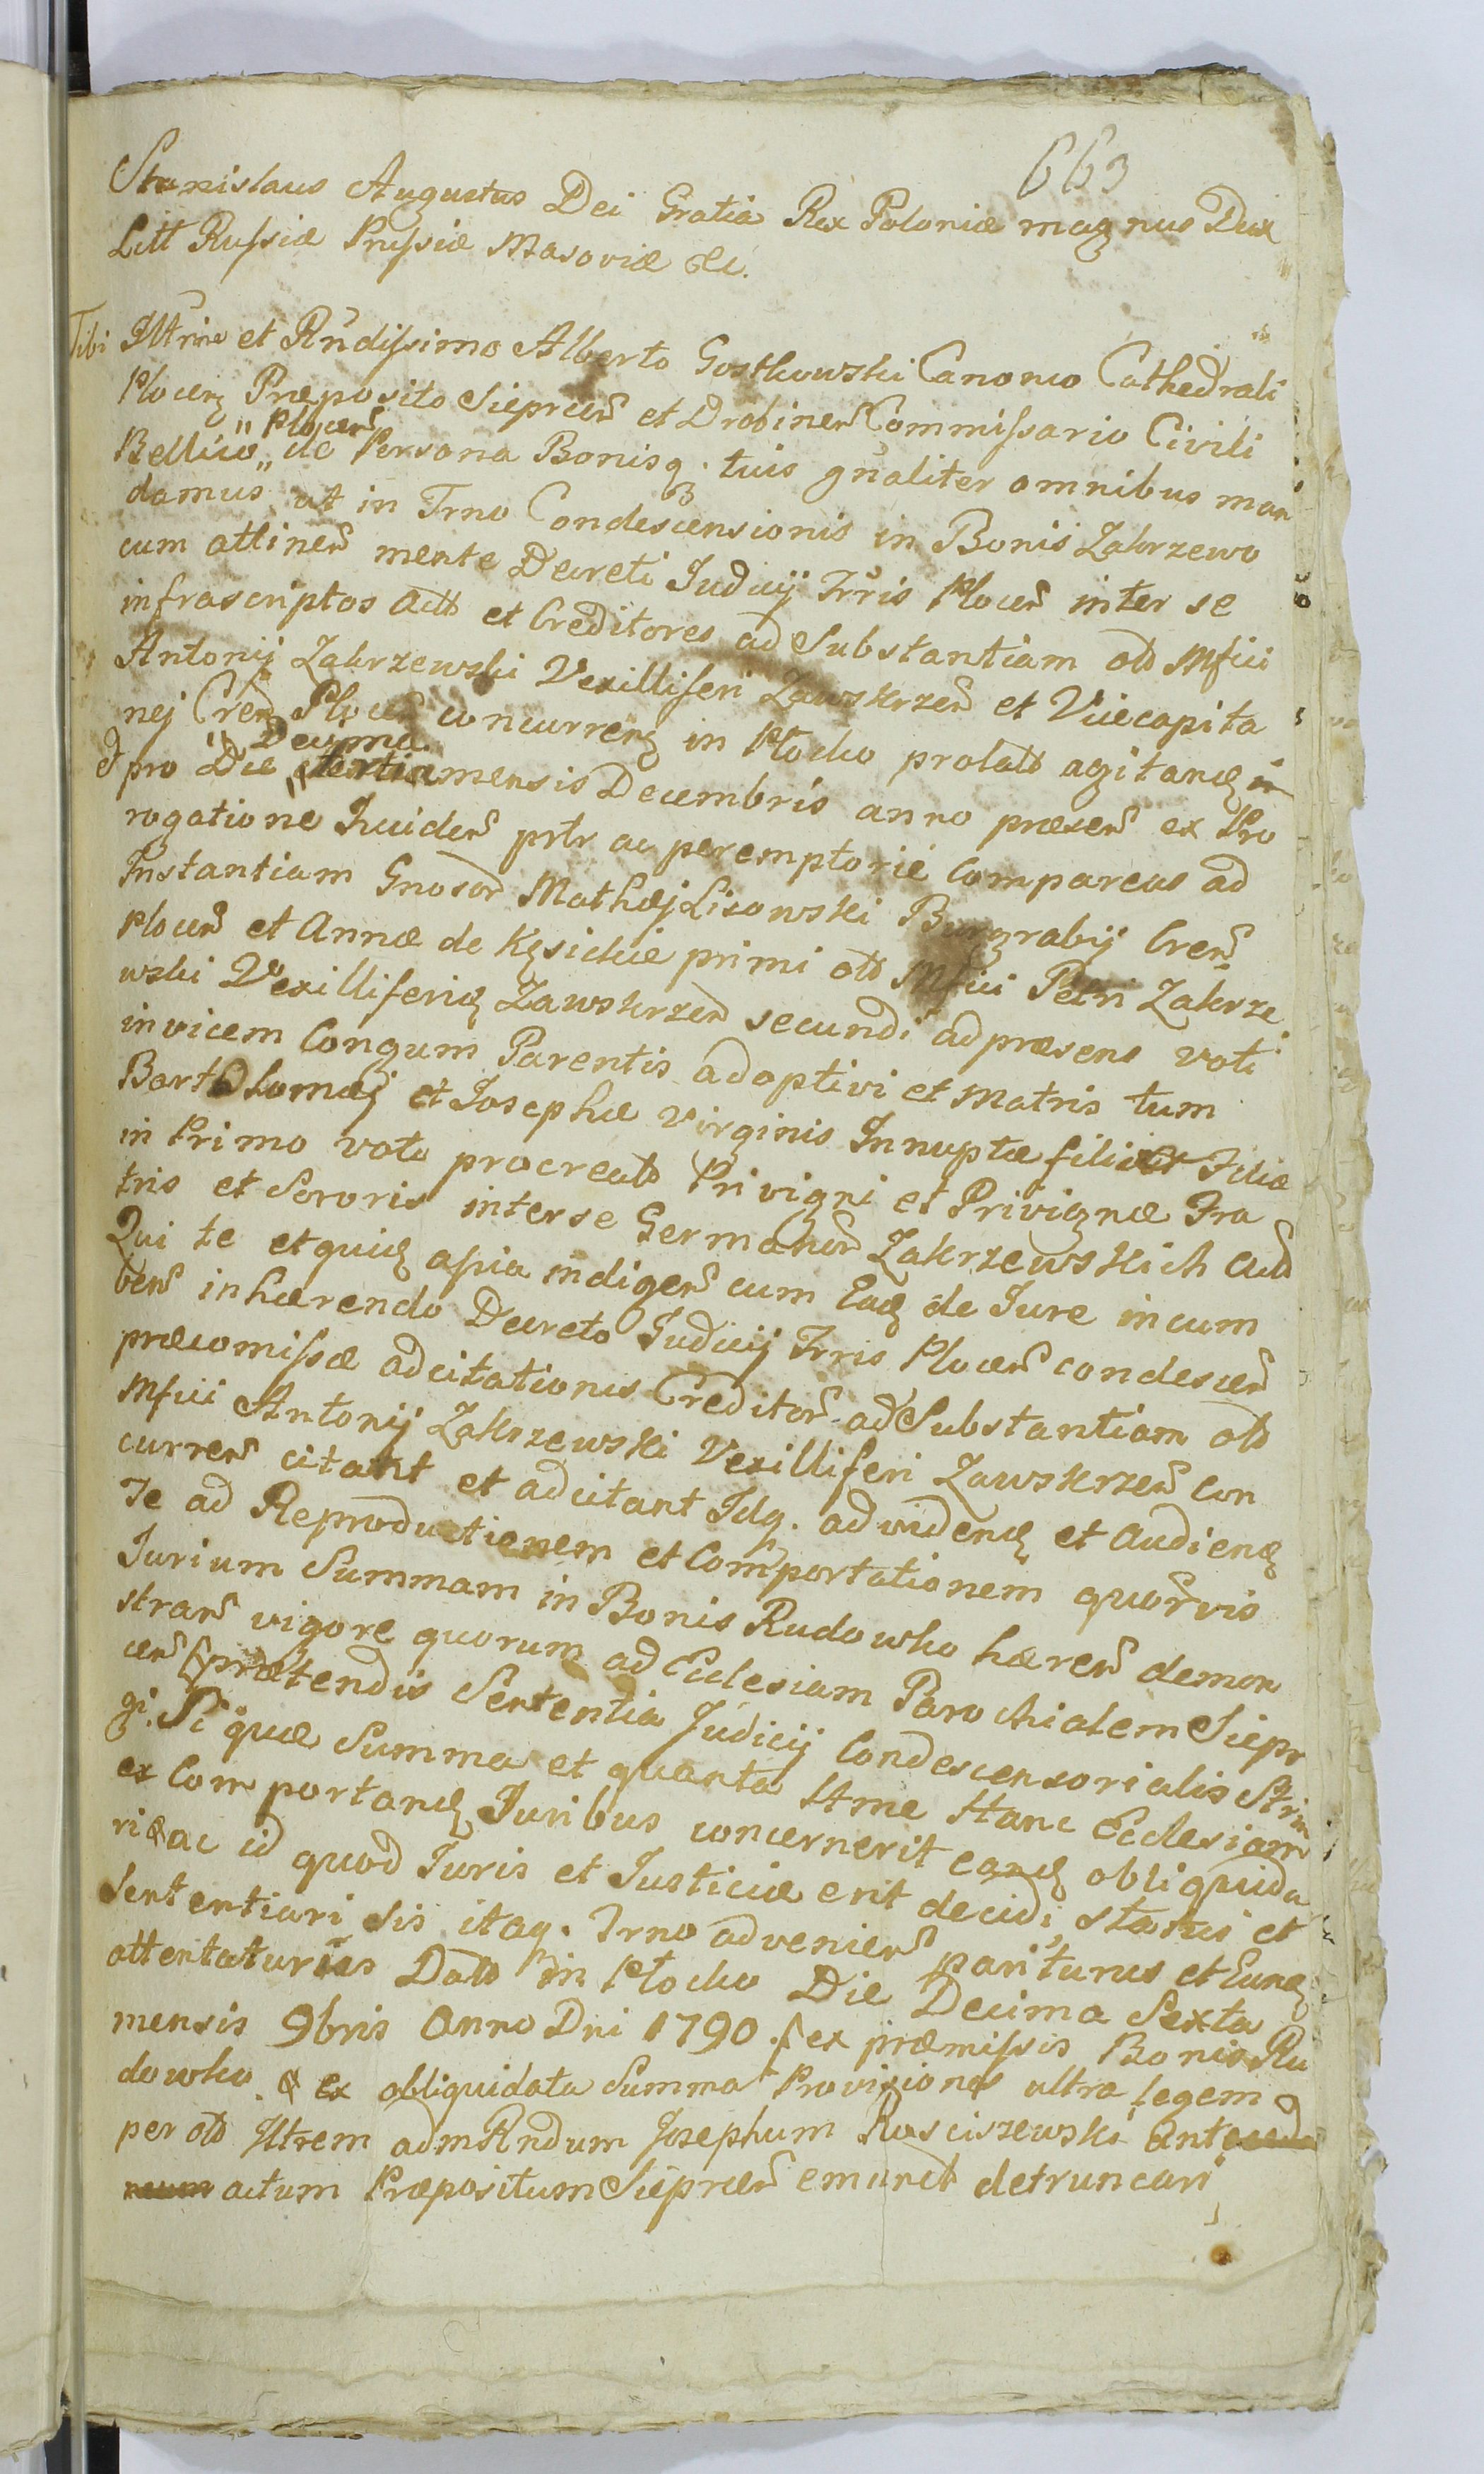 663
Stanislaus Augustus Dei Gratia Rex Poloniæ magnus Dux
Litt Russiæ Prussiæ Masoviæ &c.
Tibi Illtrine et Rndissimo Alberto Gostkowski Canonico Cathedrali
Plocen Præposito Sieprcen et Drobinen Commissario Civili
Bellico „Plocen„ de Persona Bonisq. tuis gnaliter omnibus man
damus ut in Trno Condescensionis in Bonis Zakrzewo
cum attinen mente Decreti Judicij Trris Plocen inter se
infrascriptos Actt et Creditores ad Substantiam olb Mfici
Antonij Zakrzewski Vexilliferi Zawskrzen et Vicecapita
nej Cren Plocen concurren in Płocko prolatt agitand
et pro Die „Decima„ tertia mensis Decembris anno præsen ex Pro
rogatione Inciden prtr ac peremptorie compareas ad
Instantiam Gnosor Mathæj Lisowski Burgrabij Cren
Plocen et Annæ de Kęsickie primi olb Mfici Petri Zakrze
wski Vexilliferid Zawskrzen secundi ad præsens voti
invicem Congum Parentis adoptivi et Matris tum
Bartholomæj et Josephæ Virginis Innuptæ filij et Filiæ
in Primo voto procreatt Privigni et Privignæ Fra
tris et Sororis inter se Germanor Zakrzewskich Actt
Qui te et quid assia indigen cum Ead de Jure incum
ben inhærendo Decreto Judicij Trris Plocen condescen
præcomissæ adcitationis Creditor ad Substantiam olb
Mfici Antonij Zakrzewski Vexilliferi Zawskrzen con
curren citant et adcitant Idq. ad videnđ et Audienđ
Te ad Reproductionem et Comportationem quorvis
Jurium Summam in Bonis Rudowko hæren demon
stran vigore quorum ad Ecclesiam Parochialem Siepr
cen prætendis Sententia Judicij Condescensorialis Strin
gi. Si quæ Summa et quanta Itme Hanc Ecclesiam
ex Comportand Juribus concernerit eand obliquida
ri ac id quod Juris et Justiciæ erit decidi, statui et
Sententiari sis itaq. Trno advenien pariturus et Eund
attentaturus Datt in Płocko Die Decima Sexta
mensis 9bris Anno Dni 1790. ex præmissis Bonis Ru
dowko. & ex obliquidata Summa Provisiones ultra legem
per olb Illtrem adm Rndum Josephum Rosciszewski
actum Præpositum Sieprcen emunct detruncari